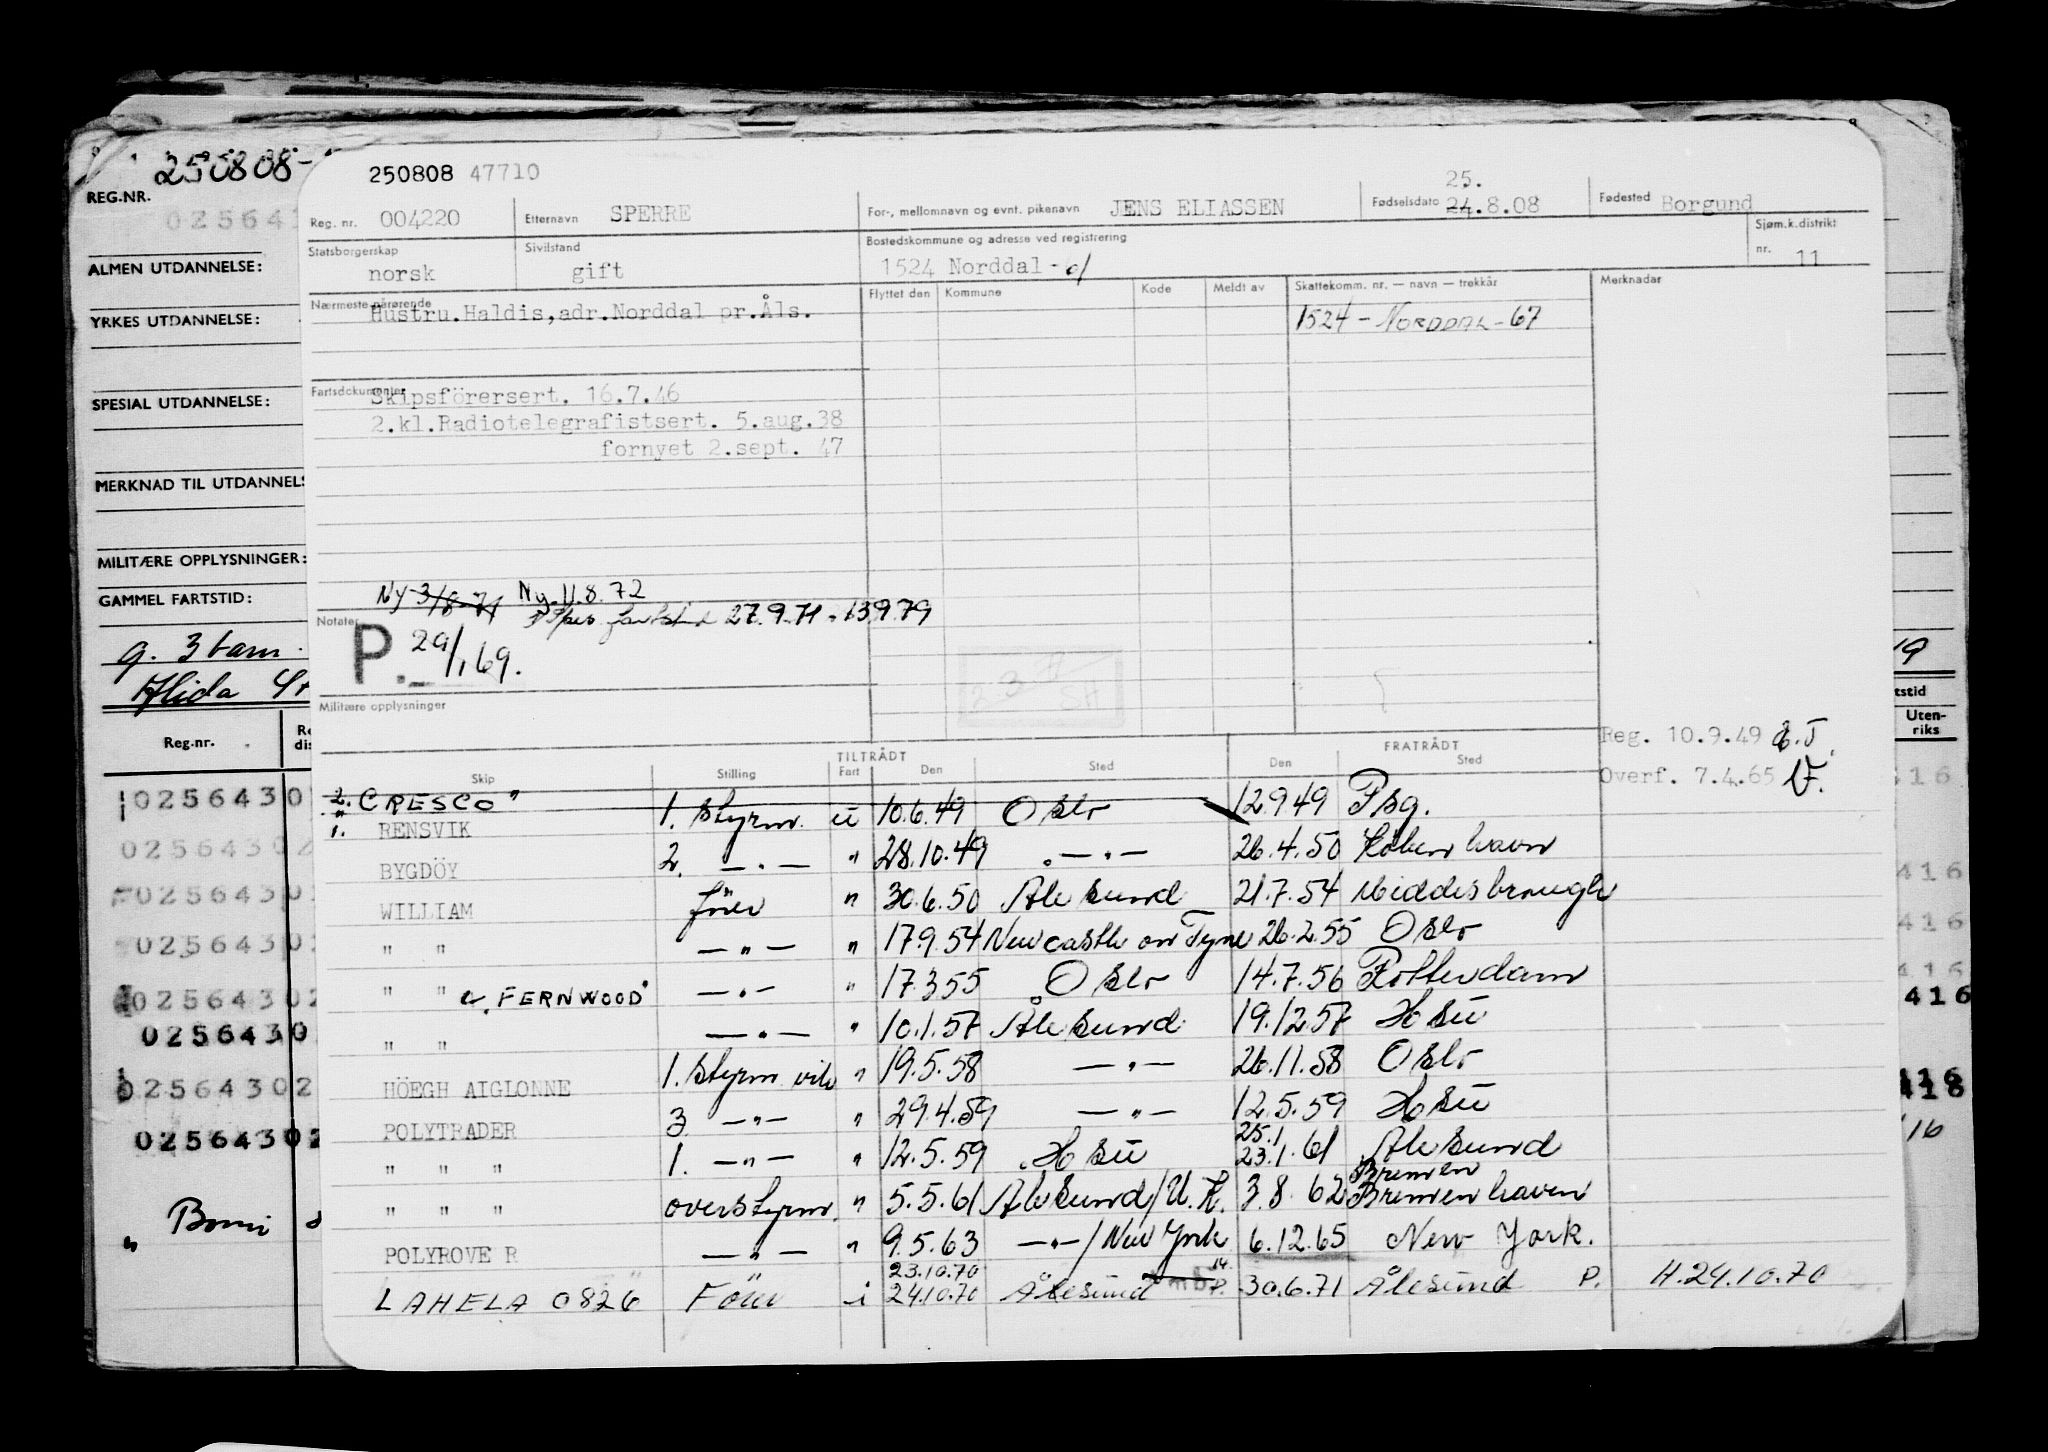 250808-
REG.NR.
025641
ALMEN UTDANNELSE:
YRKES UTDANNELSE:
SPESIAL UTDANNELSE:
MERKNAD TIL UTDANNELS
MILITÆRE OPPLYSNINGER:
GAMMEL FARTSTID:
g. 3 barn.
Reg.nr.
250808 47710
Reg. nr. 004220 Etternavn SPERRE For-, mellomnavn og evnt. pikenavn JENS ELIASSEN Fødselsdato 25. 24.8.08 Fødested Borgund
Statsborgerskap norsk Sivilstand gift Bostedskommune og adresse ved registrering 1524 Norddal Sjøm.k.distrikt nr. 11
Nærmeste pårørende Flyttet den Kommune Kode Meldt av Skattekomm. nr. — navn — trekkår Merknader
Hustru.Haldis,adr.Norddal pr.Åls. 1524 - NORDDAL - 67
Fartsdokumenter
Skipsförersert. 16.7.46
2.kl.Radiotelegrafistsert. 5.aug.38
fornyet 2.sept. 47
Ny 3/8-71 Ny. 11.8.72
27.9.71 - 13.9.79
Notater
P. 29/1 69.
Militære opplysninger
Reg. 10.9.49
Overf. 7.4.65
TILTRÅDT FRATRÅDT
Skip Stilling Fart Den Sted Den Sted
2. "CRESCO"
1. RENSVIK 1. styrm. u 10.6.49 Oslo 12.9.49 Psg.
BYGDÖY 2. — " — " 28.10.49 — " — 26.4.50 Köbenhavn
WILLIAM förer " 30.6.50 Ålesund 21.7.54 Middlesbrough
" " — " — " 17.9.54 Newcastle on Tyne 26.2.55 Oslo
" " "FERNWOOD" — " — " 17.3.55 Oslo 14.7.56 Rotterdam
" " — " — " 10.1.57 Ålesund 19.12.57 Hsü
HÖEGH AIGLONNE 1. styrm vik " 19.5.58 — " — 26.11.58 Oslo
POLYTRADER 3. — " — " 29.4.59 — " — 12.5.59 Hsü
" " " 1. — " — " 12.5.59 Hsü 25.1 23.1.61 Ålesund
" " " overstyrm. " 5.5.61 Ålesund/U.K. 3.8.62 Bremen Bremenhaven
POLYROVER — " — " 9.5.63 — " — / New York 6.12.65 New York.
LAHELA 0826 Förer i 23.10.70 24.10.70 Ålesund 30.6.71 Ålesund P. H.24.10.70
0256430
0256430
0256430
0256430
0256430
0256430
0256430
0256430
tstid
Uten-
riks
416
416
416
416
416
418